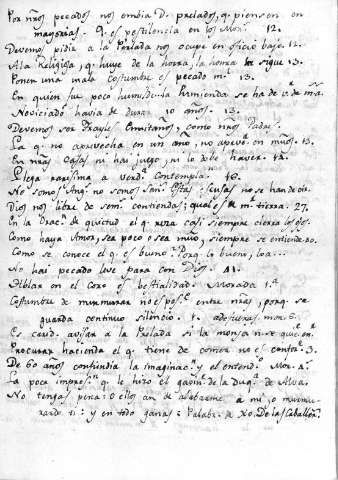 Por nr̃os pecados nos embia D.s prelados, q. piensen en
mayorias. Q. es pestilencia en los Mon.s 12.
Devemos pidir a la Perlada nos ocupe en oficio baxo. 12.
A la Religiosa, q. huye de la honrra, la honrra la sigue. 13.
Poner una mala costumbre es pecado m.l 13.
En quien fue poco humilde la humienda se ha de
Noviciado havia de durar 10 años. 13.
Devemos ser frayles Ermitaños, como nr̃os Padres.
La q. no aprovecha en un año, no aprov. en muchos. 13.
En nr̃as casas ni hai juego, ni lo debe haver. 12.
Llega a Verd.a Contempla.n
No somos Ang. no somos son. Estas escusas no se han de oir.
Dios nos libre de contiendas; qual es mi tierra. 27.
En la Orac.n de quietud el q. reza casi siempre cierra los ojos.
Como haya Amor, sea poco o sea mucho, siempre se entiende 40.
Como se conoce el q. es bueno? Porq. lo bueno, loa...
No hai pecado leve para con Dios. 41.
Hablar en el Coro es bestialidad. Morada 1.a
Costumbre de murmurar no es pos.e entre nr̃as, porq. se
guarda continuo silencio. 1. mor. 5.
Es carid. avisar a la Prelada si la monja no se quie
Procurar hacienda el q. tiene de comer no es contor. 3.
De 60 años confundia la imaginac.n y el entend.o Mor. 4.a
La poca impres.n q. le hizo el gavin.e de la Duq.a de Alva.
No tengas pena: o ellos an de alabarme a mi, o murmu-
rarte a ti: y en todo ganas: Palabr.s de Xõ. De las Caballer.